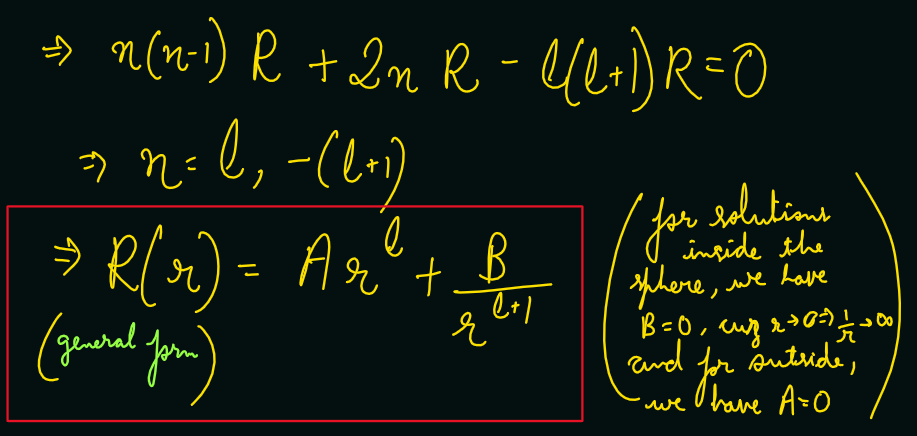 ⇒ n(n-1) R + 2n R - l(l+1) R = 0
⇒ n = l, -(l+1)
⇒ R(r) = A r^l + B/r^(l+1)
(general form)
(for solutions
inside the
sphere, we have
B=0, cuz r→0 ⇒ 1/r → ∞
and for outside,
we have A=0)